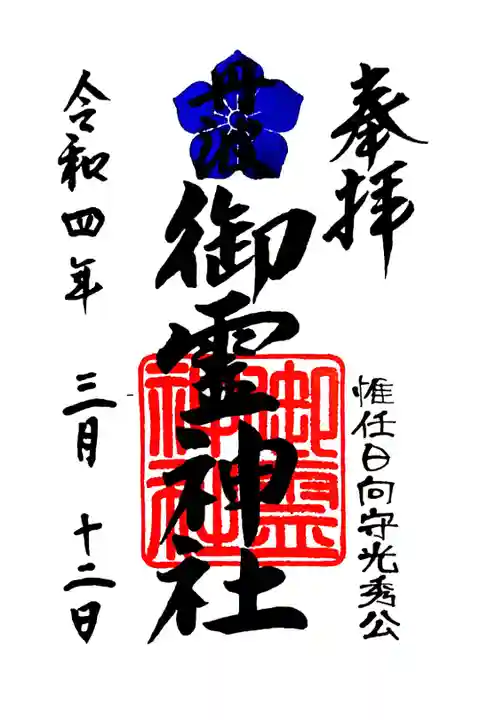 奉拝
惟任日向守光秀公
丹波
御霊神社
御霊
神社
令和四年 三月 十二日